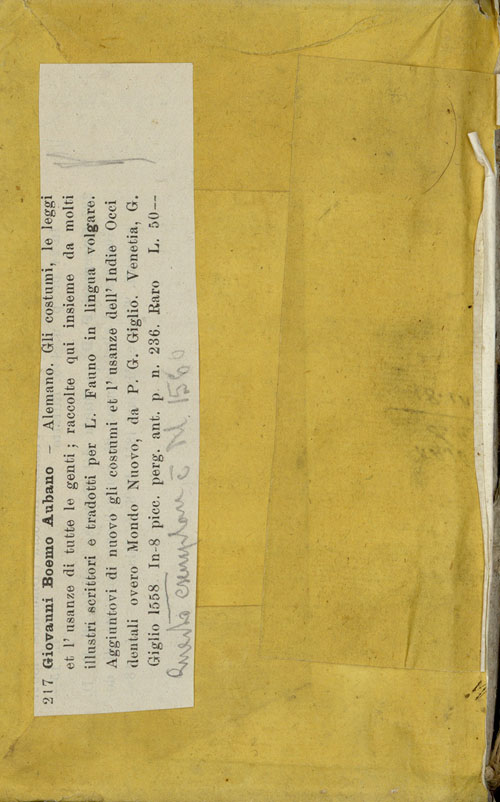 217 Giovanni Boemo Aubano – Alemano. Gli costumi, le leggi
et l' usanze di tutte le genti; raccolte qui insieme da molti
illustri scrittori e tradotti per L. Fauno in lingua volgare.
Aggiuntovi di nuovo gli costumi et l' usanze dell' Indie Occi
dentali overo Mondo Nuovo, da P. G. Giglio. Venetia, G.
Giglio 1558 In-8 picc. perg. ant. p n. 236. Raro L. 50--
Questo Esemplare è del 1560